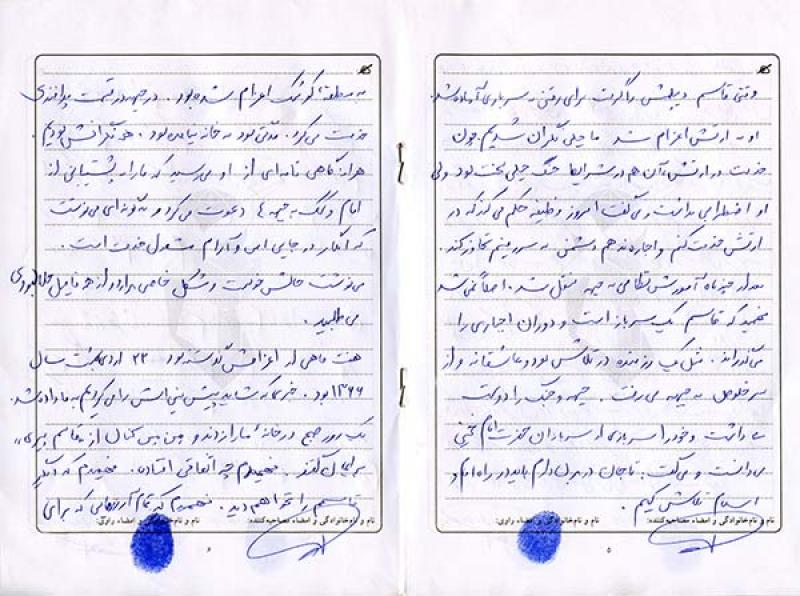 وقتی قاسم دیپلمش را گرفت برای رفتن به سربازی آماده شد.
او به ارتش اعزام شد ما خیلی نگران شدیم چون
خدمت در ارتش، آن هم در شرایط جنگ خیلی سخت بود ولی
او اضطرابی نداشت و می‌گفت امروز وظیفه حکم می‌کند که در
ارتش خدمت کنم و اجازه ندهم دشمن به سرزمینم تجاوز کند.
بعد از چند ماه آموزش نظامی به جبهه منتقل شد. اصلاً نمی‌شد
فهمید که قاسم یک سرباز است و دوران اجباری را
می‌گذراند. مثل یک رزمنده در تلاش بود و عاشقانه و از
سر خلوص به جبهه می‌رفت. جبهه و جنگ را دوست
می‌داشت و خود را سربازی از سربازان حضرت امام خمینی
می‌دانست و می‌گفت: تا جان در بدن دارم باید در راه امام و
اسلام تلاش کنیم.
نام و نام‌خانوادگی و امضاء مصاحبه‌کننده: نام و نام‌خانوادگی و امضاء راوی:
۵
به منطقه گرمک اعزام شده بود. در جبهه در قسمت پدافندی
خدمت می‌کرد. مدتی بود به خانه نیامده بود. همه نگرانش بودیم
هر از گاهی نامه‌ای از او می‌رسید که ما را به پشتیبانی از
امام و کمک به جبهه‌ها دعوت می‌کرد و به گونه‌ای می‌نوشت
که انگار در جایی امن و آرام مشغول خدمت است.
می‌نوشت حالش خوبست و مشکل خاصی ندارد و از همه فامیل حلالیت
می‌طلبید.
هفت ماهی از اعزامش گذشته بود ۲۳ اردیبهشت سال
۱۳۶۶ بود. خبری که شاید پیش‌بینی‌اش را می‌کردیم به ما داده شد.
یک روز صبح در خانه ما را زدند و من پس کنال از قاسم پیری»
برایمان گفتند. فهمیدم چه اتفاقی افتاده. فهمیدم که دیگر
قاسم را نخواهم دید. فهمیدم که تمام آرزوهایی که برای
نام و نام‌خانوادگی و امضاء مصاحبه‌کننده: نام و نام‌خانوادگی و امضاء راوی: